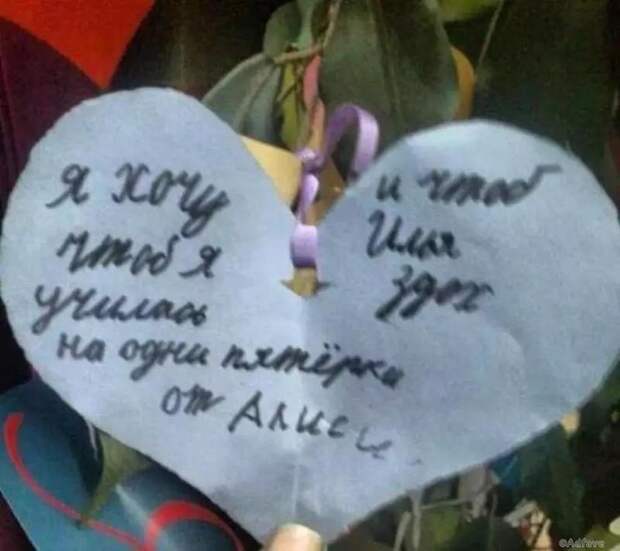 я хочу
чтоб я
училась
на одни пятёрки
от Алисы.
и чтоб
Илья
здох
©Adfave